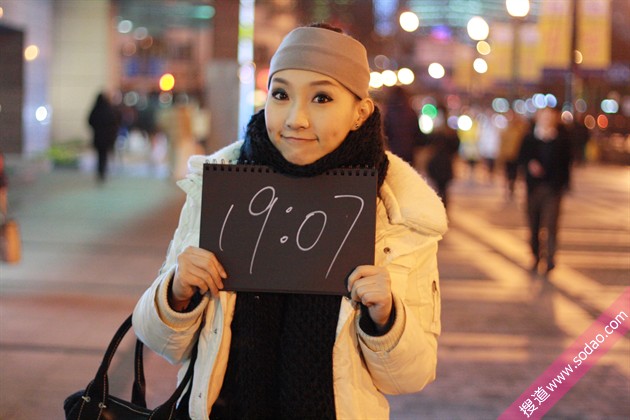 19:07
搜道www.sodao.com